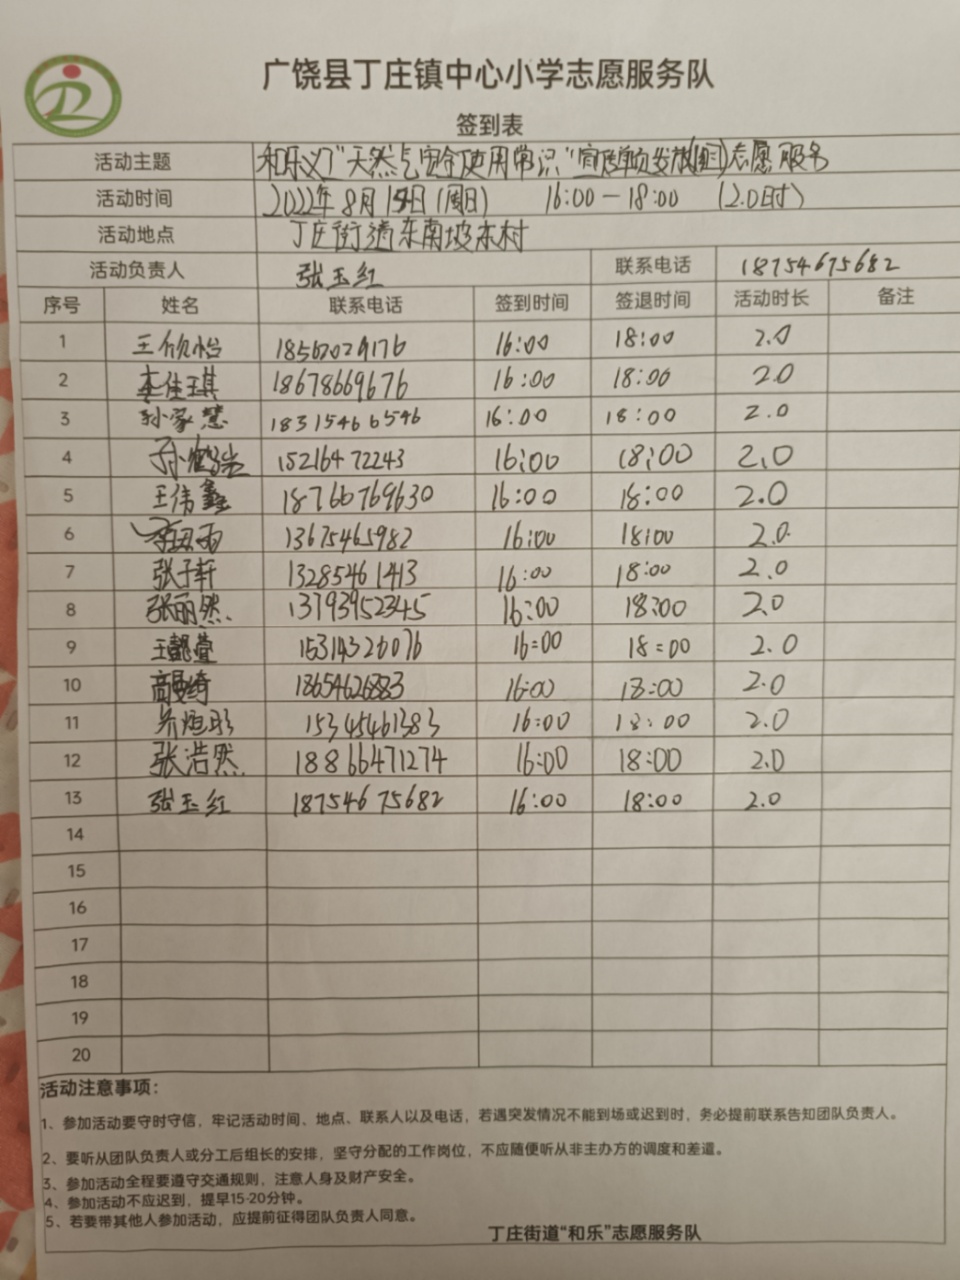 广饶县丁庄镇中心小学志愿服务队
签到表
活动主题 和乐义工"天然气安全使用常识"宣传单页发放 志愿服务
活动时间 2022年8月14日(周日) 16:00-18:00 (2.0时)
活动地点 丁庄街道东南坡村
活动负责人 张玉红 联系电话 18754675682
序号 姓名 联系电话 签到时间 签退时间 活动时长 备注
1 王欣怡 18562029176 16:00 18:00 2.0
2 李佳琪 18678669676 16:00 18:00 2.0
3 孙家慧 18315466546 16:00 18:00 2.0
4 孙鹤 15216472243 16:00 18:00 2.0
5 王伟鑫 18766769630 16:00 18:00 2.0
6 雨 13675465982 16:00 18:00 2.0
7 张子轩 13285461413 16:00 18:00 2.0
8 张丽然 13793952345 16:00 18:00 2.0
9 王懿萱 15314326076 16:00 18:00 2.0
10 高曼绮 18654626883 16:00 18:00 2.0
11 15345461383 16:00 18:00 2.0
12 张浩然 18866471274 16:00 18:00 2.0
13 张玉红 18754675682 16:00 18:00 2.0
14
15
16
17
18
19
20
活动注意事项：
1、参加活动要守时守信，牢记活动时间、地点、联系人以及电话，若遇突发情况不能到场或迟到时，务必提前联系告知团队负责人。
2、要听从团队负责人或分工后组长的安排，坚守分配的工作岗位，不应随便听从非主办方的调度和差遣。
3、参加活动全程要遵守交通规则，注意人身及财产安全。
4、参加活动不应迟到，提早15-20分钟。
5、若要带其他人参加活动，应提前征得团队负责人同意。
丁庄街道"和乐"志愿服务队